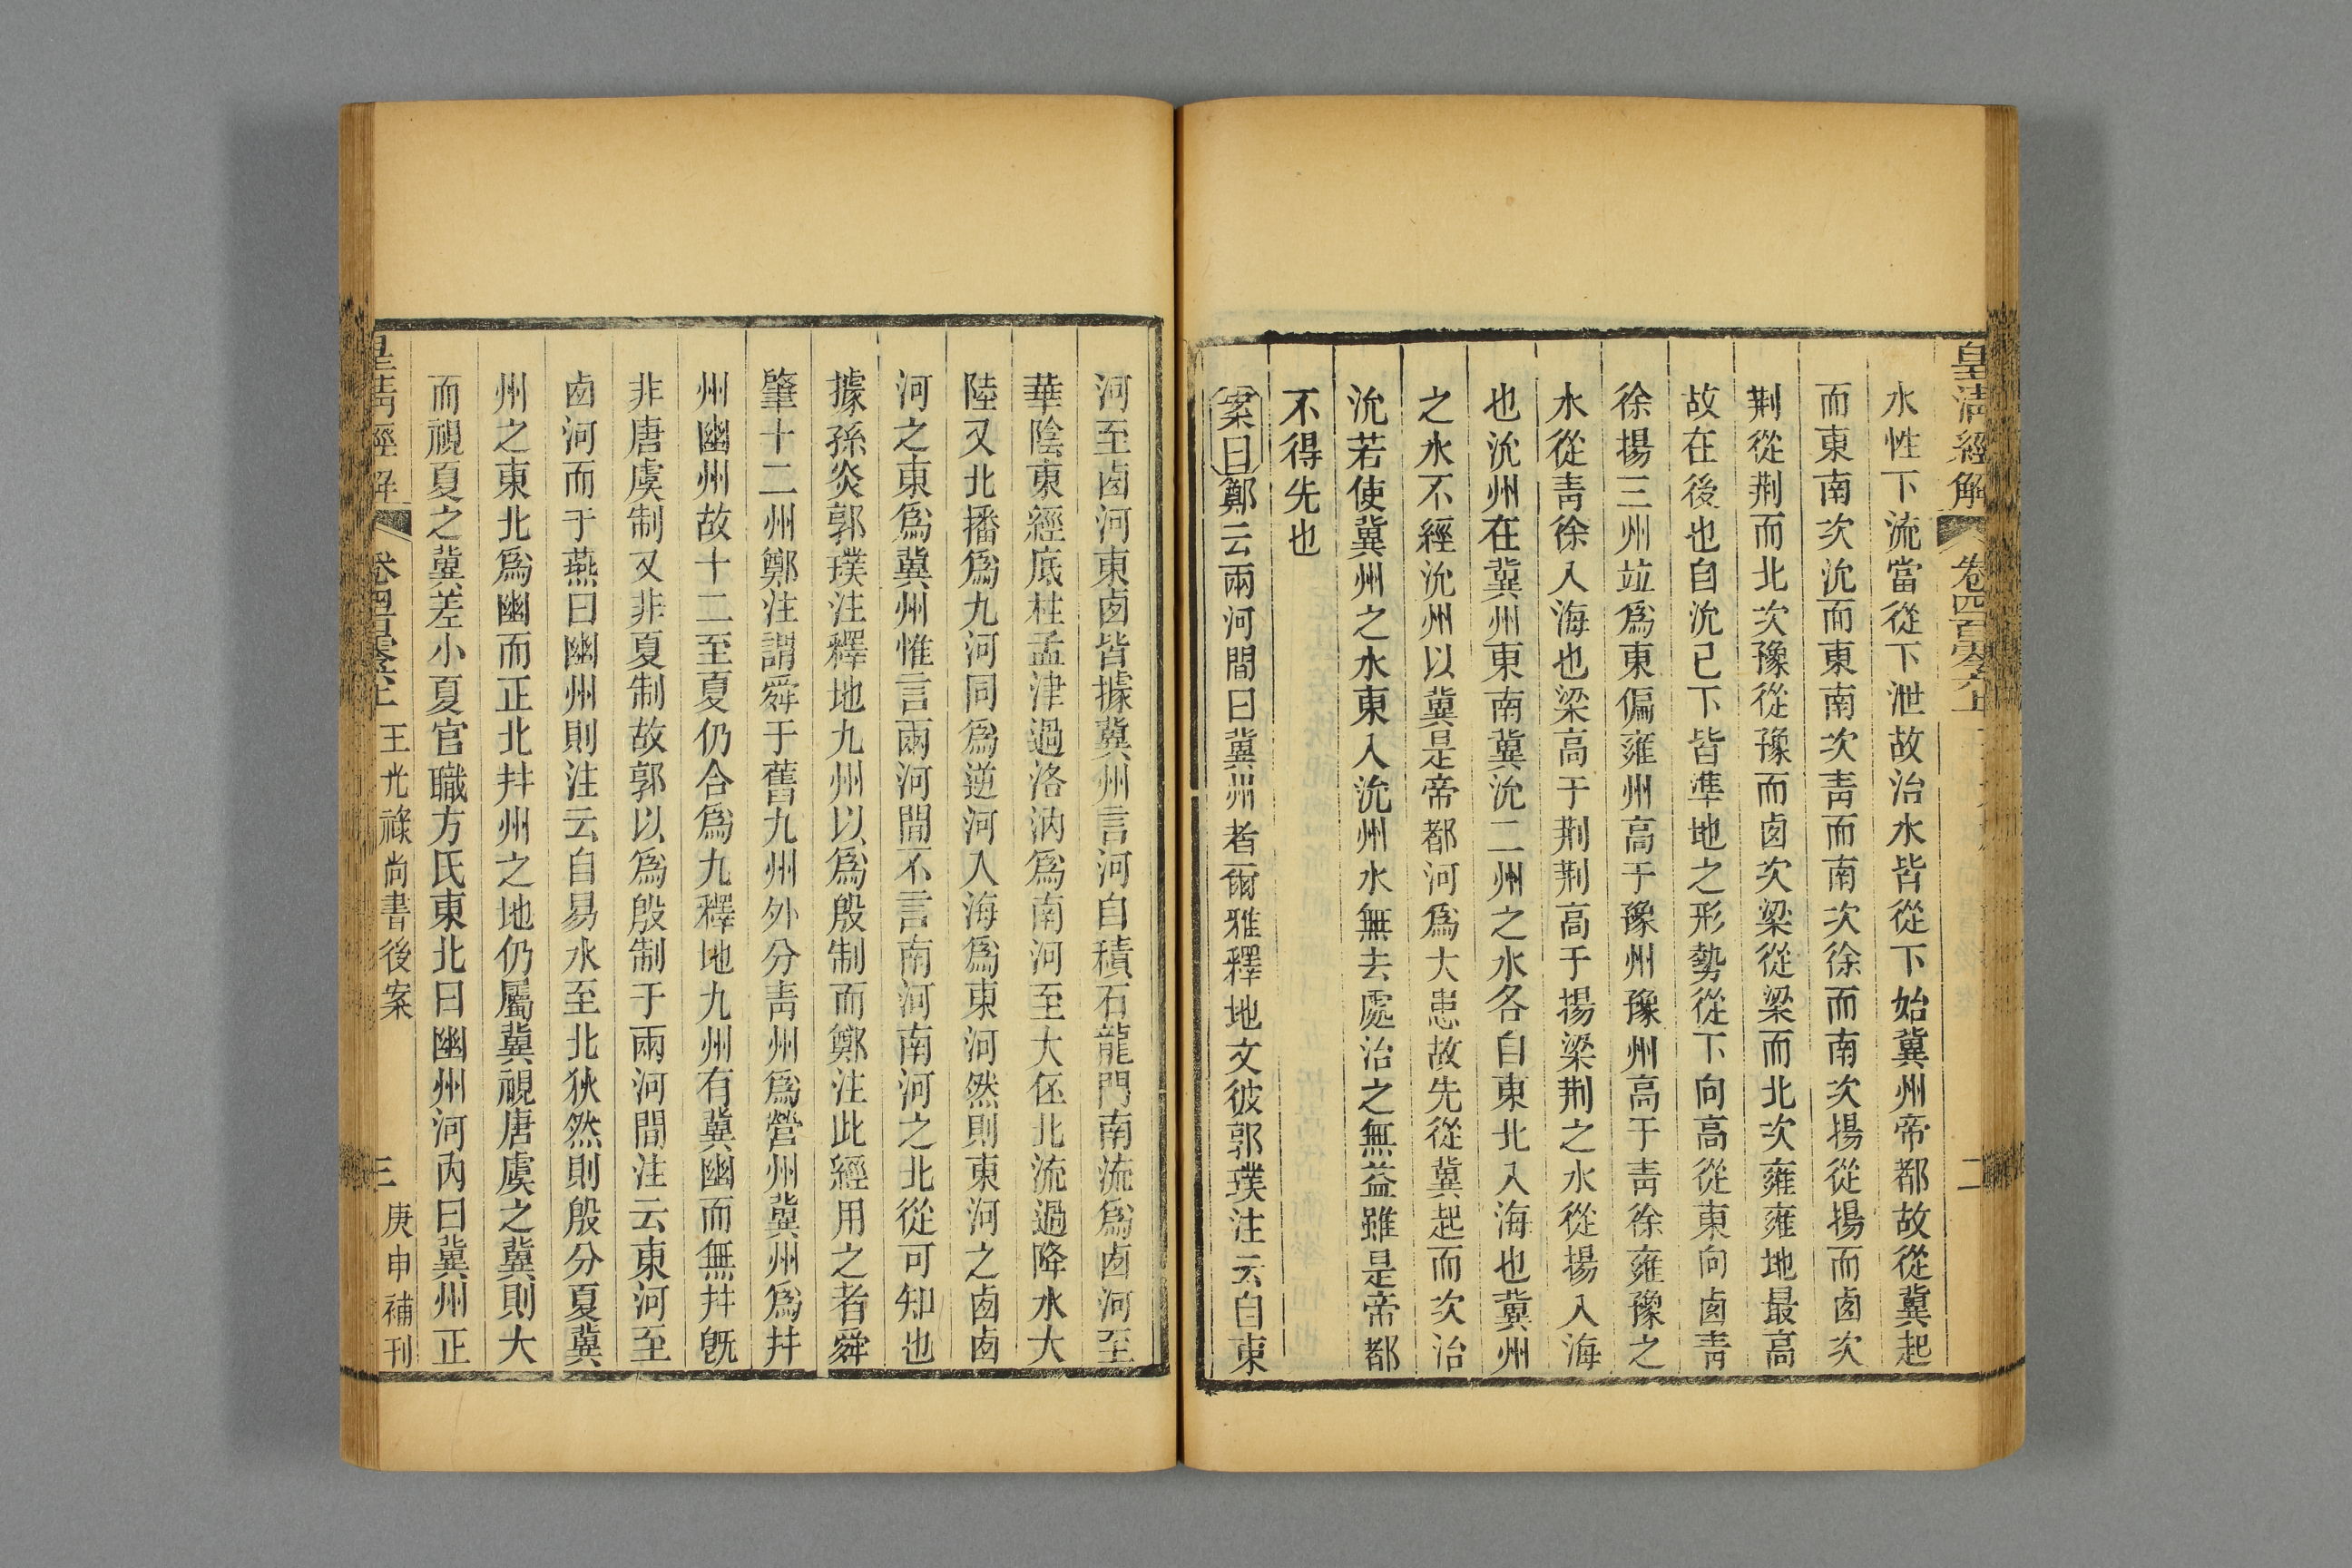 皇清經解 卷四百零六上 二
水性下流當從下泄故治水皆從下始冀州帝都故從冀起
而東南次沇而東南次靑而南次徐而南次揚從揚而卥次
荆從荆而北次豫從豫而卥次梁從梁而北次雍雍地最高
故在後也自沇已下皆準地之形勢從下向高從東向卥靑
徐揚三州竝爲東偏雍州高于豫州豫州高于靑徐雍豫之
水從靑徐入海也梁高于荆荆高于揚梁荆之水從揚入海
也沇州在冀州東南冀沇二州之水各自東北入海也冀州
之水不經沇州以冀是帝都河爲大患故先從冀起而次治
沇若使冀州之水東入沇州水無去處治之無益雖是帝都
不得先也
案曰鄭云兩河間曰冀州者爾雅釋地文彼郭璞注云自東
河至卥河東卥皆據冀州言河自積石龍門南流爲卥河至
華陰東經底柱孟津過洛汭爲南河至大伾北流過降水大
陸又北播爲九河同爲逆河入海爲東河然則東河之卥卥
河之東爲冀州惟言兩河間不言南河南河之北從可知也
據孫炎郭璞注釋地九州以爲殷制而鄭注此經用之者舜
肇十二州鄭注謂舜于舊九州外分靑州爲營州冀州爲幷
州幽州故十二至夏仍合爲九釋地九州有冀幽而無幷旣
非唐虞制又非夏制故郭以爲殷制于兩河間注云東河至
卥河而于燕曰幽州則注云自易水至北狄然則殷分夏冀
州之東北爲幽而正北幷州之地仍屬冀視唐虞之冀則大
而視夏之冀差小夏官職方氏東北曰幽州河內曰冀州正
皇清經解 卷四百零六上 王光祿尚書後案 三 庚申補刊